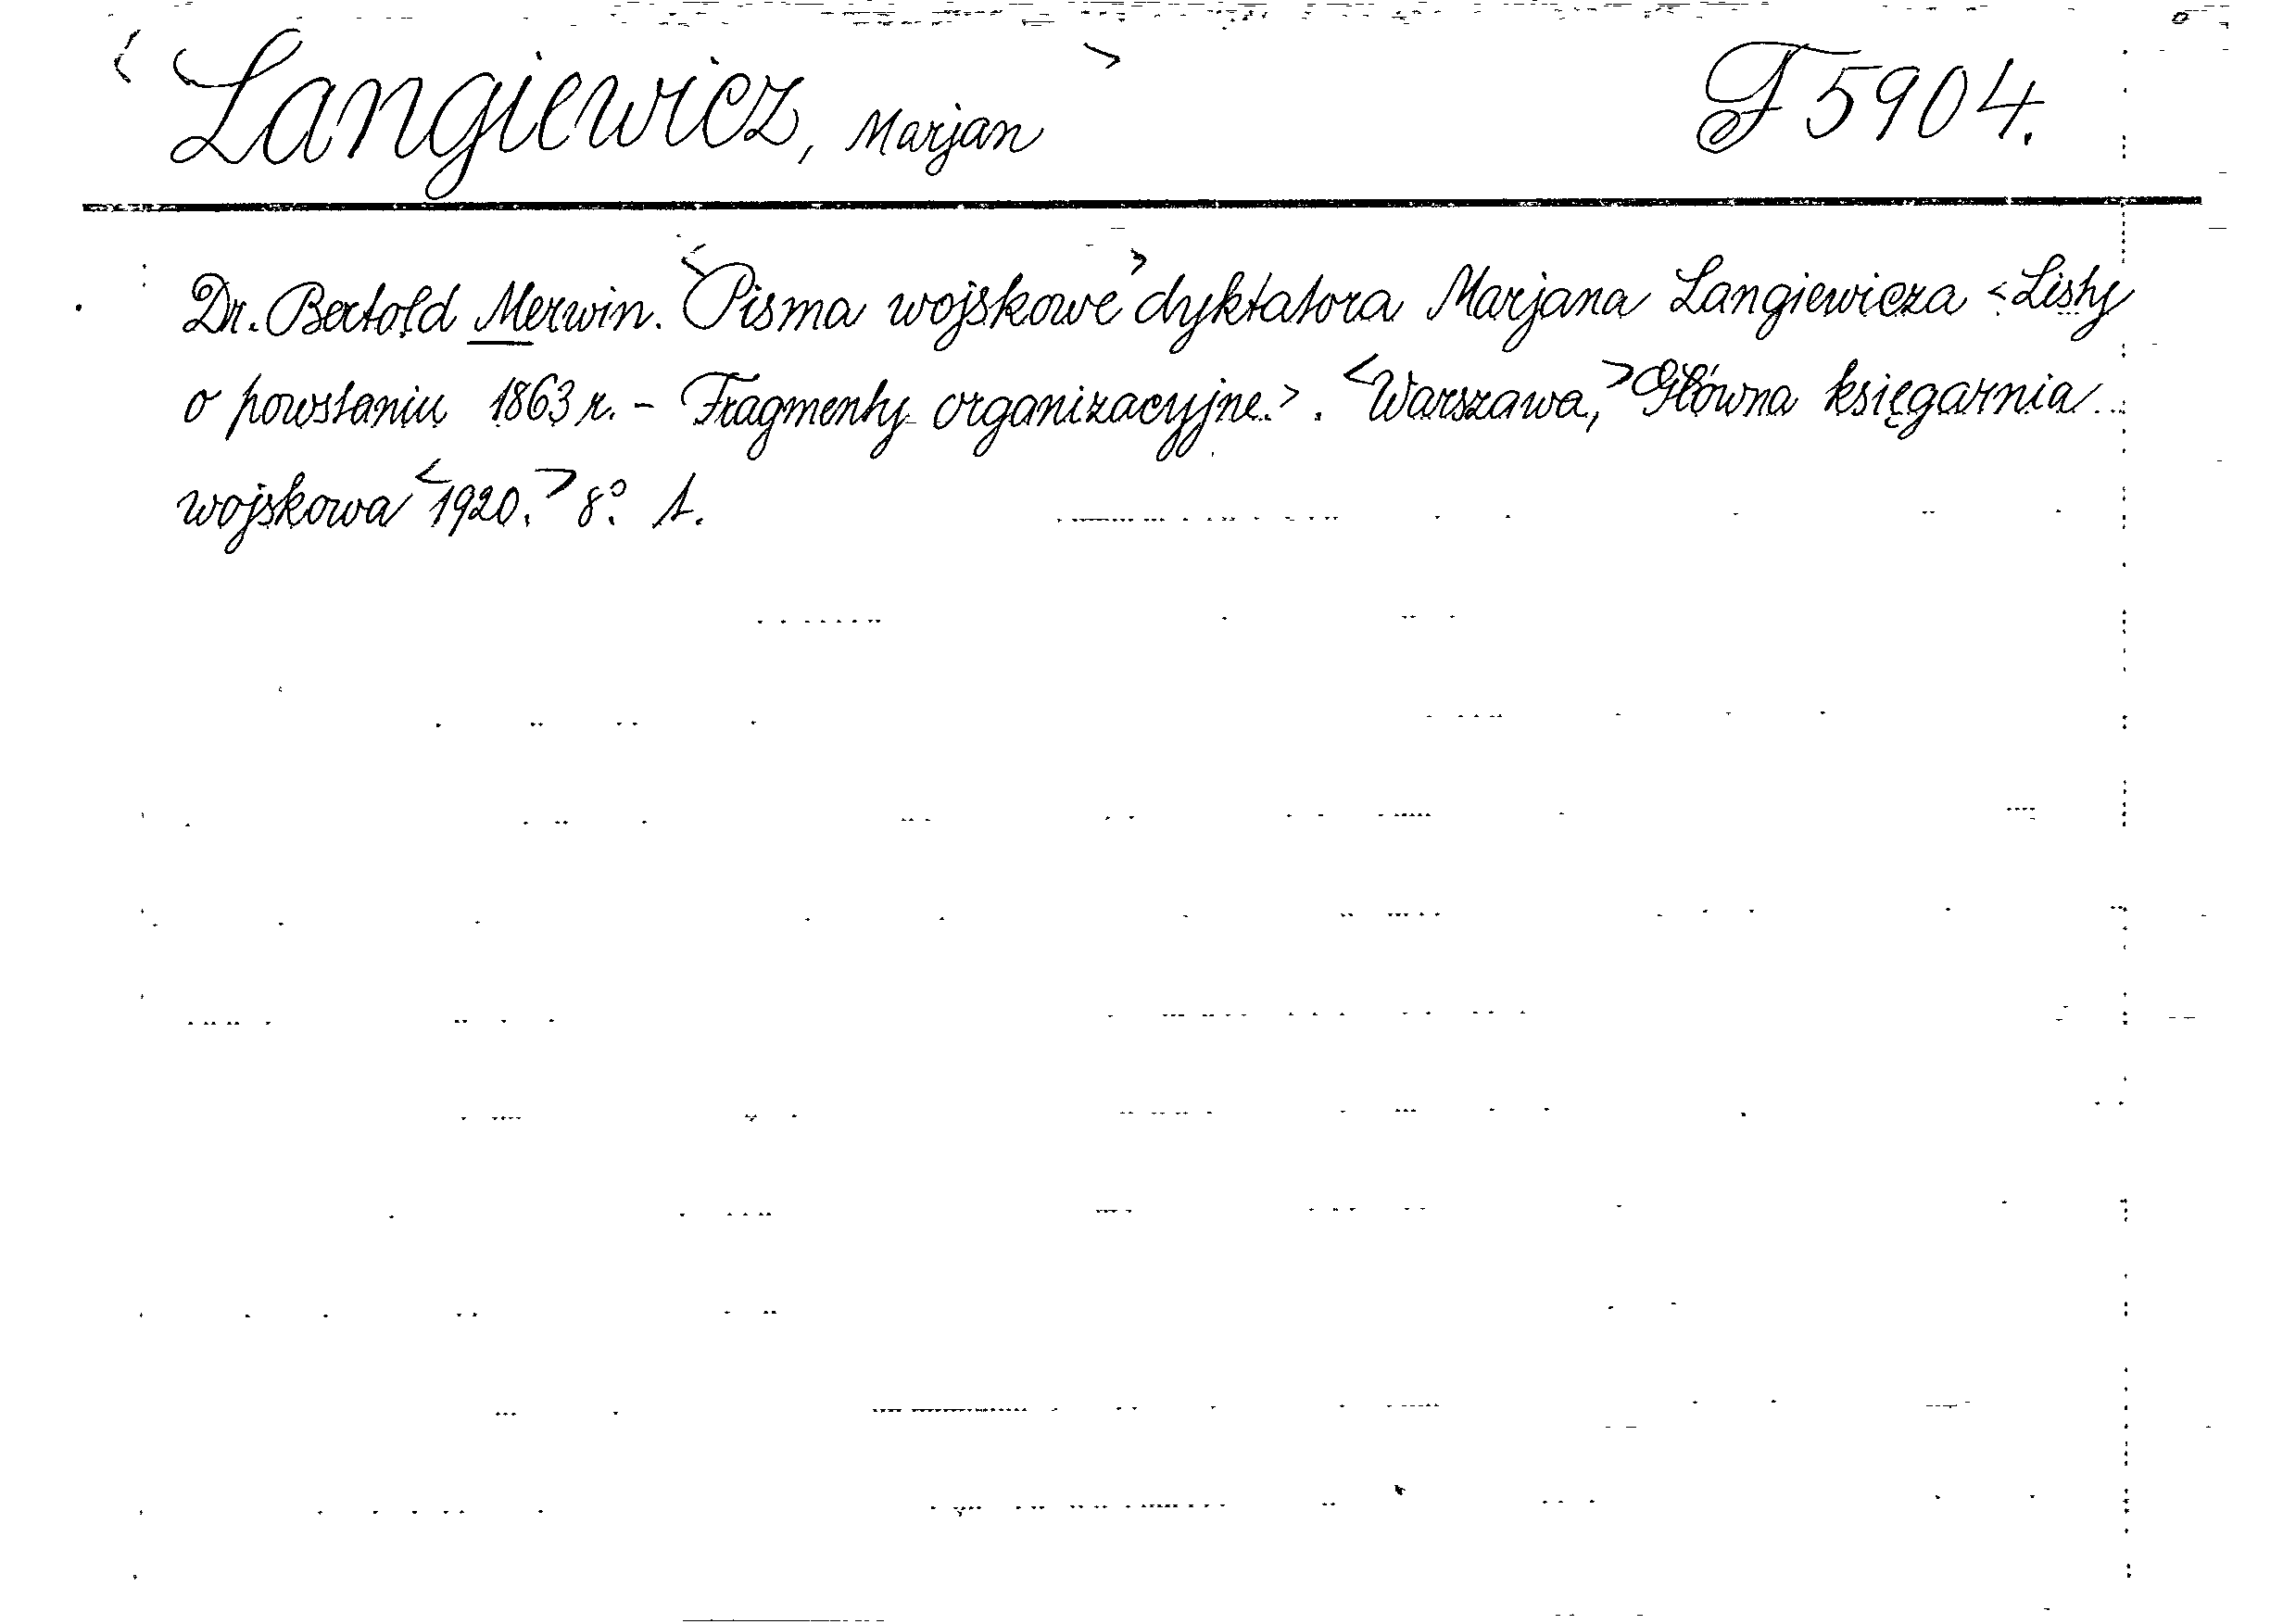 <Langiewicz, Marjan> F 5904.
Dr. Bertold Merwin. <Pisma wojskowe> dyktatora Marjana Langiewicza <Listy
o powstaniu 1863 r. - Fragmenty organizacyjne.>. <Warszawa,> Główna księgarnia
wojskowa <1920.> 8° 1.